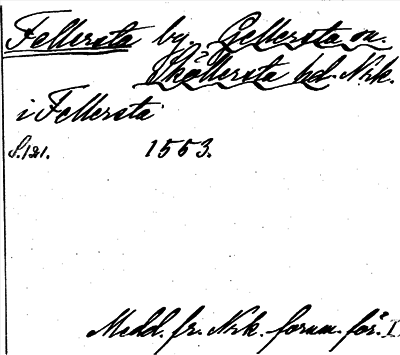 Fellersta by, Gellersta sn.
Sköllersta hd. Nrk.
i Fellersta
S. 121. 1553.
Medd. fr. Nrk. fornm. för. I